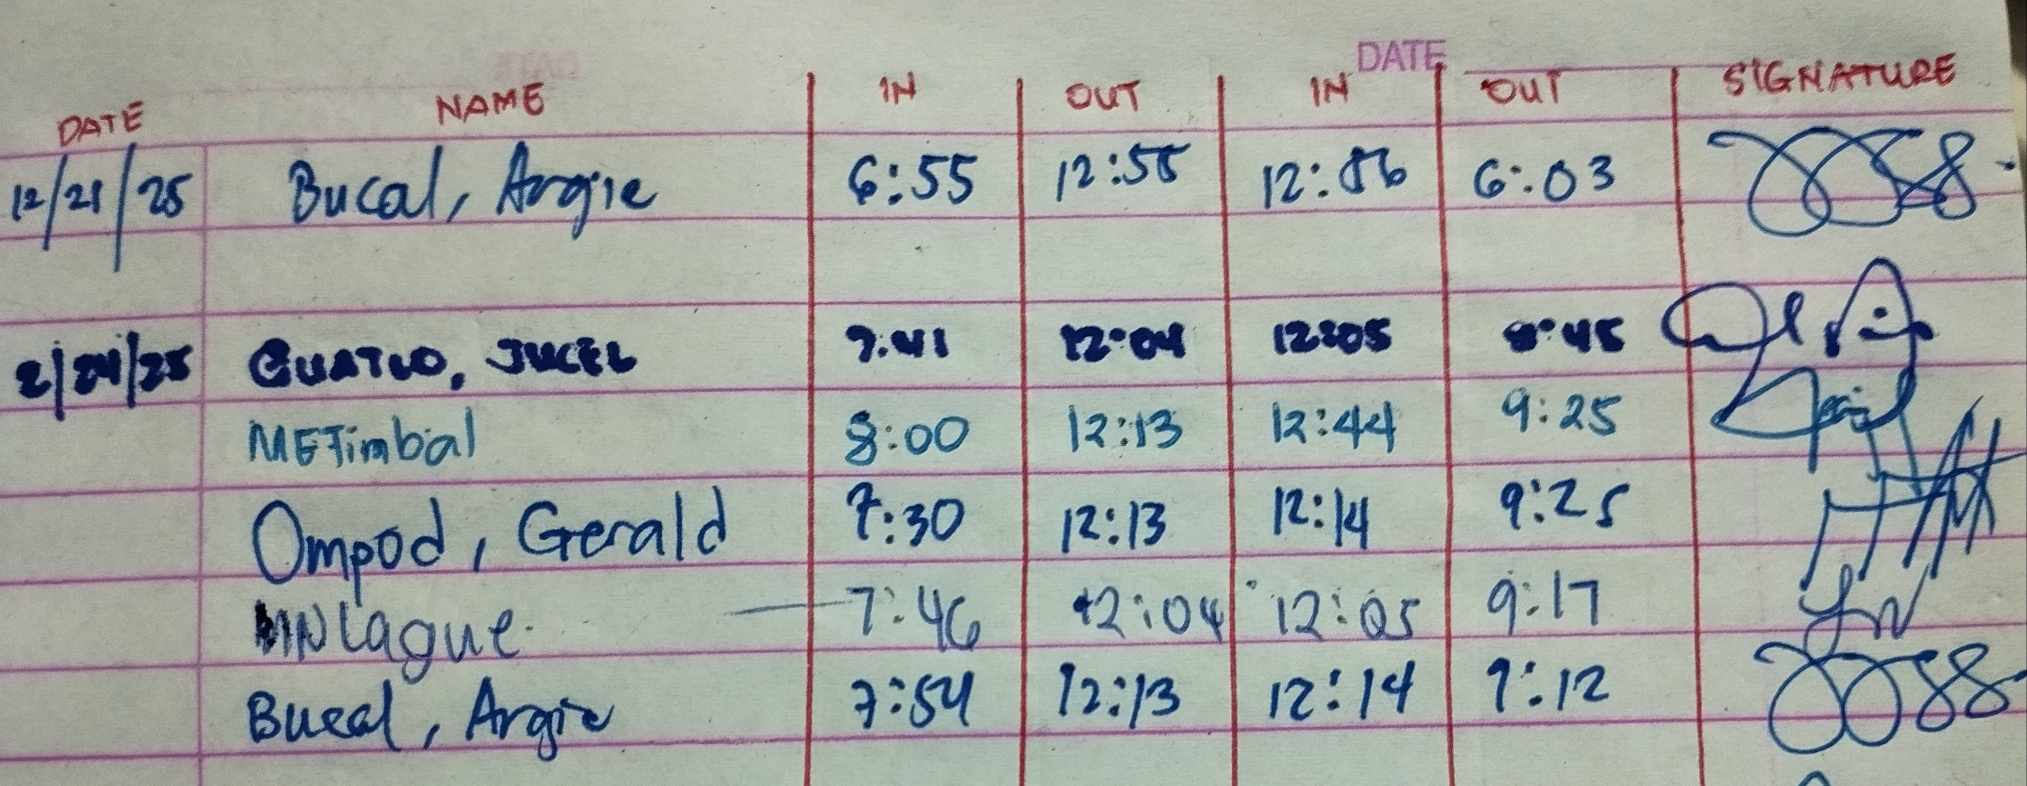 DATE
DATE NAME IN OUT IN OUT SIGNATURE
12/21/25 Bucal, Argie 6:55 12:55 12:56 6:03
2/24/25 GUATLO, JUCEL 7:41 12:04 12:05 8:45
METimbal 8:00 12:13 12:44 9:25
Ompod, Gerald 7:30 12:13 12:14 9:25
MNLague 7:46 12:04 12:05 9:17
Bucal, Argie 7:54 12:13 12:14 9:12